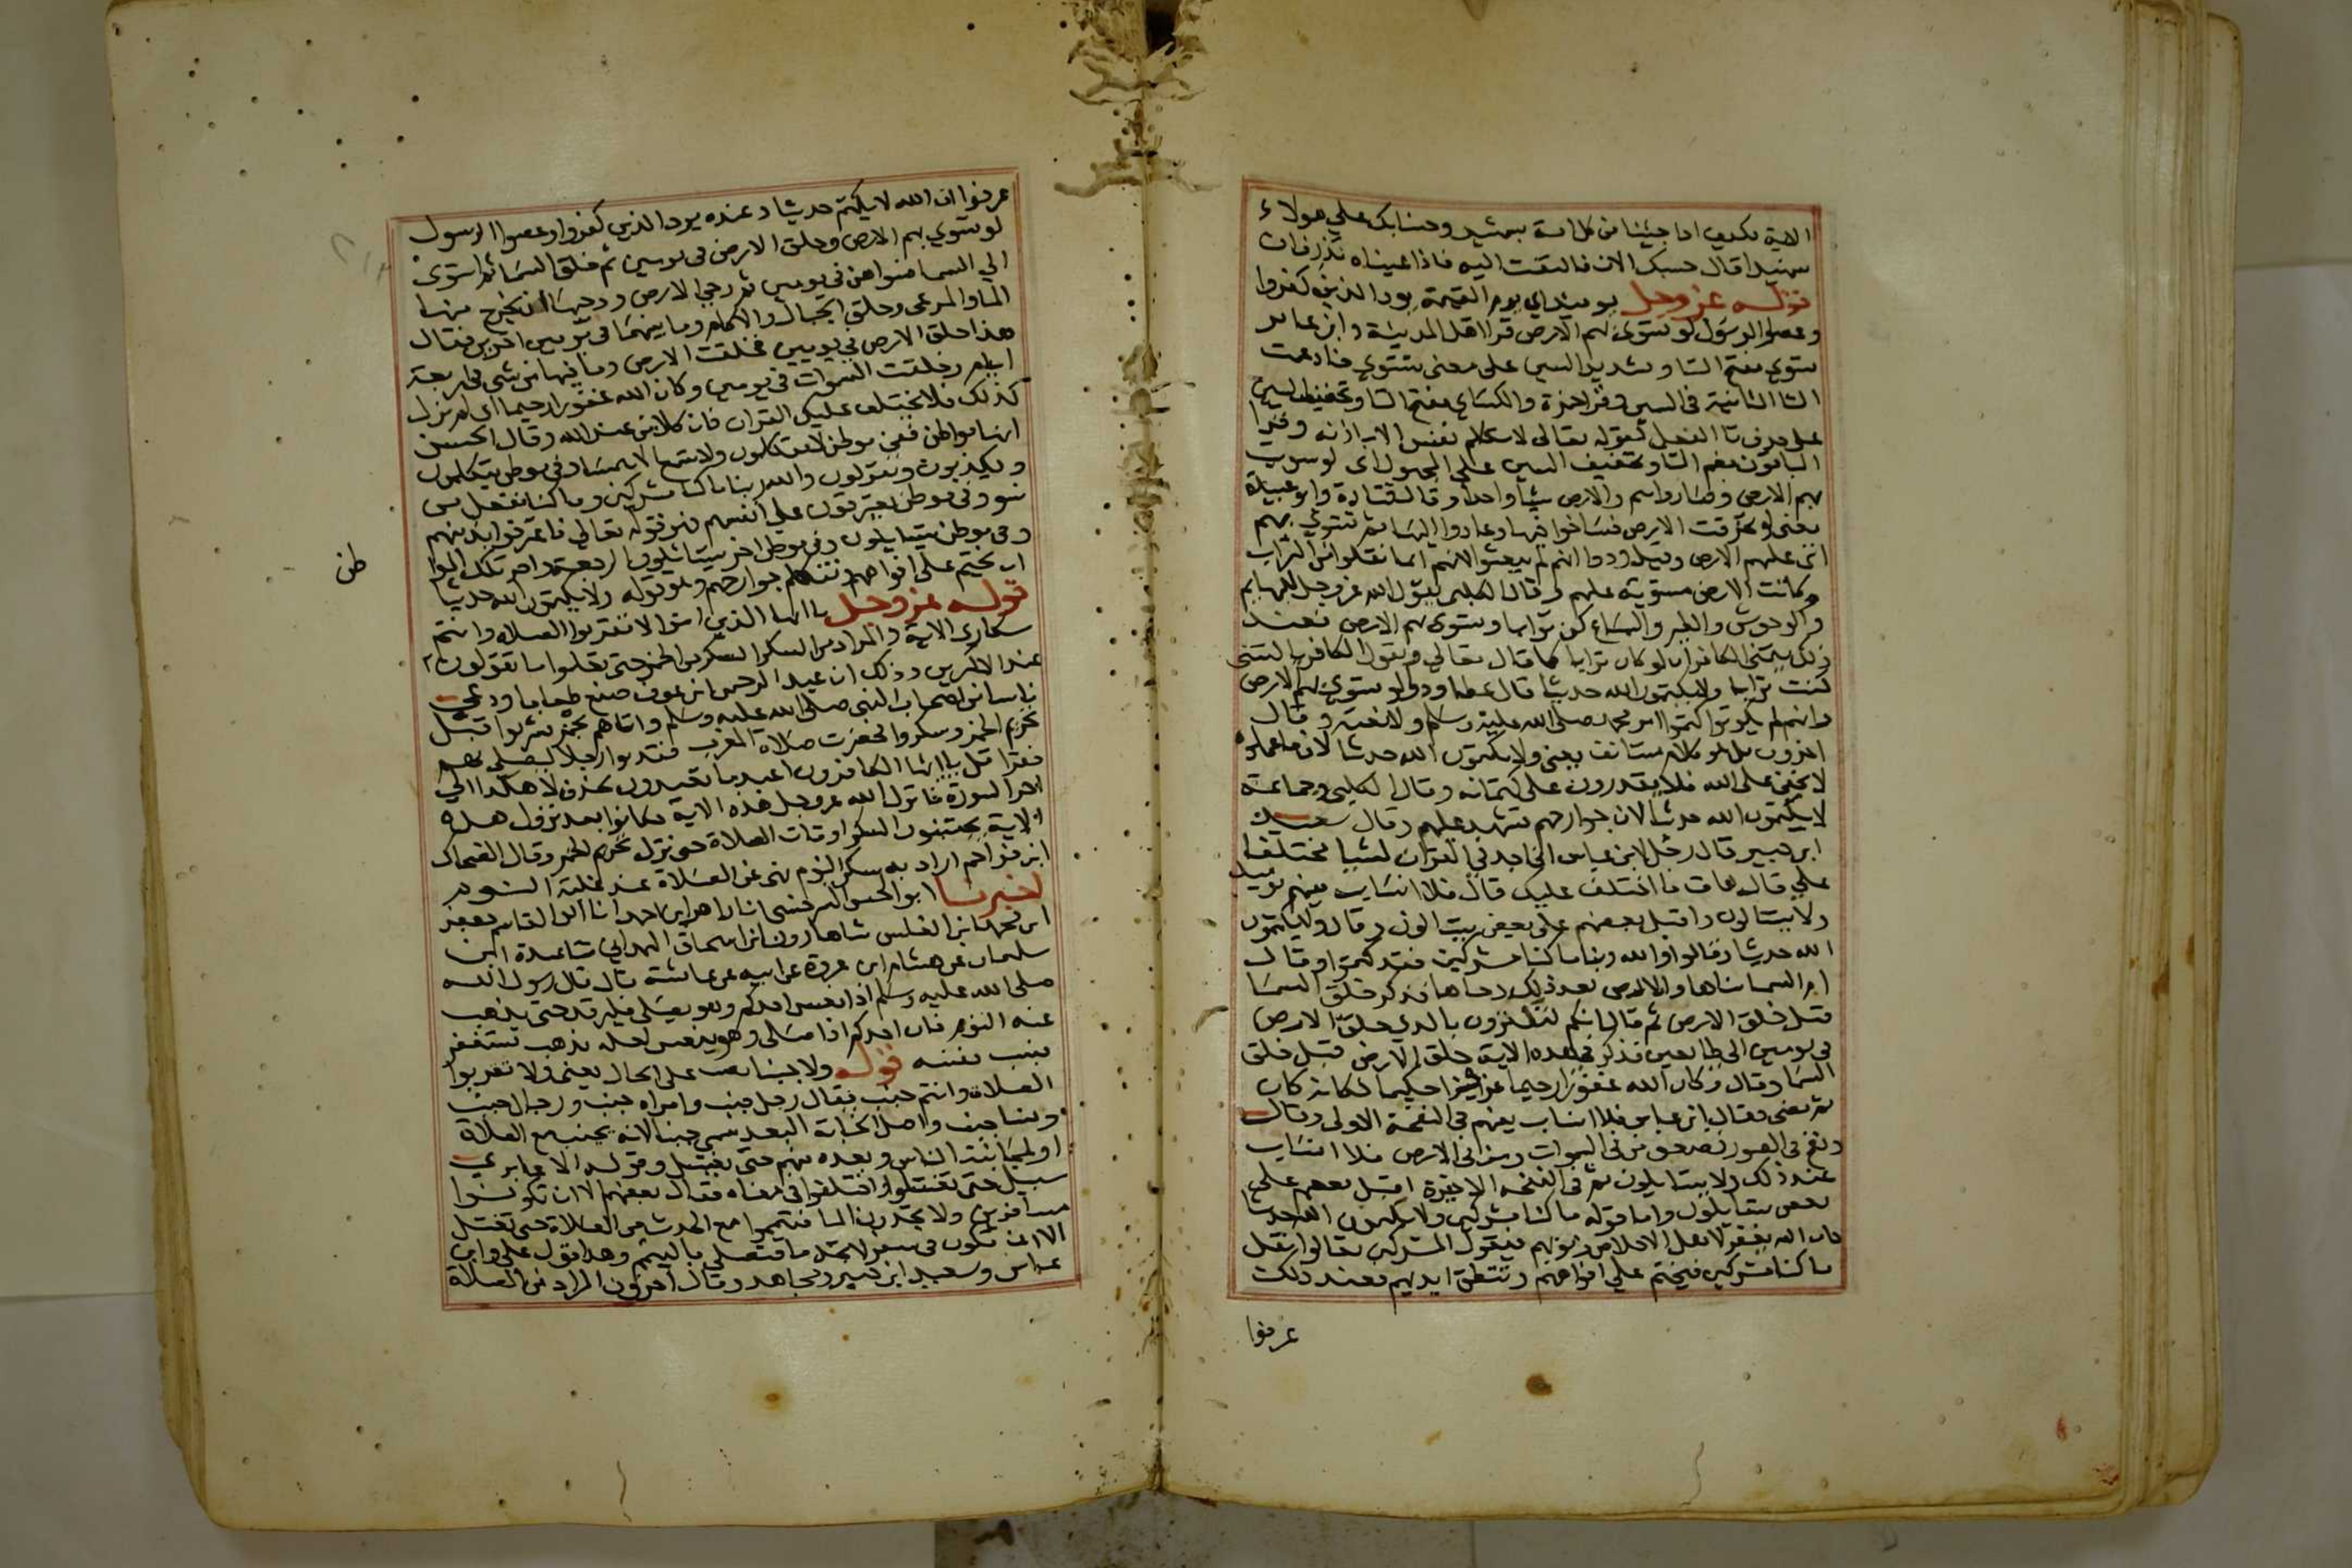 الاية فكيف اذا جئنا من كل امة بشهيد وجئنا بك علي هولاء
شهيدا قال حسبك الان فالتفت اليه فاذا عيناه تذرفان
قوله عز وجل يوميذ اي يوم القيمة يود الذين كفروا
وعصوا الرسول لو تسوى بهم الارض قرا اهل المدينة وابن عامر
تسوي بفتح التا وتشديد السين على معنى تتسوي فادغمت
التا الثانية في السين وقرا حمزة والكساي بفتح التا وتخفيف السين
على حذف تا الفعل كقوله تعالى لا تكلم نفس الا باذنه وقرا
الباقون بضم التا وتخفيف السين على المجهول اى لو سويت
بهم الارض وصاروا هم والارض شيا واحدا وقال قتادة وابو عبيدة
يعنى لو تخرقت الارض فساخوا فيها وعادوا اليها ثم تسوي بهم
اى عليهم الارض وقيل ودوا انهم لم يبعثوا لانهم انما نقلوا من التراب
وكانت الارض مستوية عليهم وقال الكلبي يقول الله عز وجل للبهايم
والوحوش والطير والسباع كن ترابا وتسوى بهم الارض فعند
ذلك يتمنى الكافر ان لو كان ترابا كما قال تعالي ويقول الكافر يا ليتنى
كنت ترابا ولا يكتمون الله حديثا قال عطا ودوا لو تسوى بهم الارض
وانهم لم يكونوا كتموا امر محمد صلى الله عليه وسلم ولا نعته وقال
اخرون بل هو كلام مستانف يعنى ولا يكتمون الله حديثا لان ما عملوه
لا يخفى على الله فلا يقدرون على كتمانه وقال الكلبي وجماعة
لا يكتمون الله حديثا لان جوارحهم تشهد عليهم وقال سعيد
ابن جبير قال رجل لابن عباس انى اجد في القران اشيا تختلف
علي قال هات ما اختلف عليك قال فلا انساب بينهم يوميذ
ولا يتسالون واقبل بعضهم على بعض يتسالون وقال ولا يكتمون
الله حديثا وقالوا والله ربنا ما كنا مشركين فقد كتموا وقال
ام السما بناها والارض بعد ذلك دحاها فذكر خلق السما
قبل خلق الارض ثم قال اينكم لتكفرون بالدي خلق الارض
في يومين الى طايعين فذكر في هذه الاية خلق الارض قبل خلق
السما وقال وكان الله غفورا رحيما عزيزا حكيما فكانه كان
ثم مضى فقال ابن عباس فلا انساب بينهم في النفخة الاولى وقال
ونفخ في الصور فصعق من في السموات ومن في الارض فلا انساب
عند ذلك ولا يتسايلون ثم في النفخه الاخيرة اقبل بعضهم على
بعض يتسايلون واما قوله ما كنا مشركين ولا يكتمون الله حديثا
فان الله يغفر لاهل الاخلاص ذنوبهم فيقول المشركين تعالوا نقل
ما كنا مشركين فيختم علي افواههم وتنطق ايديهم فعند ذلك
عرفوا
عرفوا ان الله لا يكتم حديثا وعنده يود الذين كفروا وعصوا الرسول
لو تسوي بهم الارض وخلق الارض في يومين ثم خلق السما ثم استوى
الي السما فسواهن في يومين ثم دحي الارض ودحيها ان يخرج منها
الماء والمرعى وخلق الجبال والاكام وما بينهما في يومين اخرين فقال
هذا خلق الارض في يومين فخلقت الارض وما فيها من شى في اربعة
ايام وخلقت السموات في يومين وكان الله غفورا رحيما اى لم يزل
كذلك فلا يختلف عليك القران فان كلا من عند الله وقال الحسن
انها مواطن ففي موطن لا يتكلمون ولا تسمع الا همسا وفي موطن يتكلمون
ويكذبون ويقولون والله ربنا ما كنا مشركين وما كنا نعمل من
سوء وفي موطن يعترفون على انفسهم فهو قوله تعالي فاعترفوا بذنبهم
وفي موطن يتسايلون وفي موطن اخر يسالون الرجعة واخر تلك الموا
طن
ان يختم على افواههم وتتكلم جوارحهم وهو قوله ولا يكتمون الله حديثا
قوله عز وجل يا ايها الذين امنوا لا تقربوا الصلاه وانتم
سكارى الاية والمراد من السكر السكر من الخمر حتى تعلموا ما تقولون
عند الاكثرين وذلك ان عبد الرحمن ابن عوف صنع طعاما ودعى
ناسا من اصحاب النبي صلى الله عليه وسلم واتاهم بخمر فشربوا قبل
تحريم الخمر وسكروا فحضرت صلاة المغرب فقدموا رجلا ليصلي بهم
فقرا قل يا ايها الكافرون اعبد ما تعبدون بحذف لا هكذا الي
اخر السورة فانزل الله عز وجل هذه الاية فكانوا بعد نزول هذه
الاية يجتنبون السكر اوقات الصلاة حتى نزل تحريم الخمر وقال الضحاك
ابن مزاحم اراد به سكر النوم نهى عن الصلاة عند غلبة النوم
اخبرنا ابو الحسن السرخسى انا زاهر ابن احمد انا ابو القاسم جعفر
ابن محمد ابن المغلس ثنا هارون ابن اسحاق الهمداني ثنا عبدة ابن
سليمان عن هشام ابن عروة عن ابيه عن عائشة قال قال رسول الله
صلى الله عليه وسلم اذا نعس احدكم وهو يصلى فليرقد حتى يذهب
عنه النوم فان احدكم اذا صلى وهو ينعس لعله يذهب يستغفر
فيسب نفسه قوله ولا جنبا نصب على الحال يعنى ولا تقربوا
الصلاة وانتم جنب يقال رجل جنب وامراه جنب ورجال جنب
ونسا جنب واصل الجنابة البعد سمي جنبا لانه يجتنب مع الصلاة
او لمجانبته الناس وبعده منهم حتى يغتسل وقوله الا عابري
سبيل حتى تغتسلوا اختلفوا في معناه فقال بعضهم الا ان تكونوا
مسافرين ولا تجدون الما فتيمموا منع الجنب من الصلاة حتى تغتسل
الا ان تكون في سفر لا تجد ما فتصلي بالتيمم وهذا قول علي وابن
عباس وسعيد ابن جبير ومجاهد وقال اخرون المراد من الصلاة